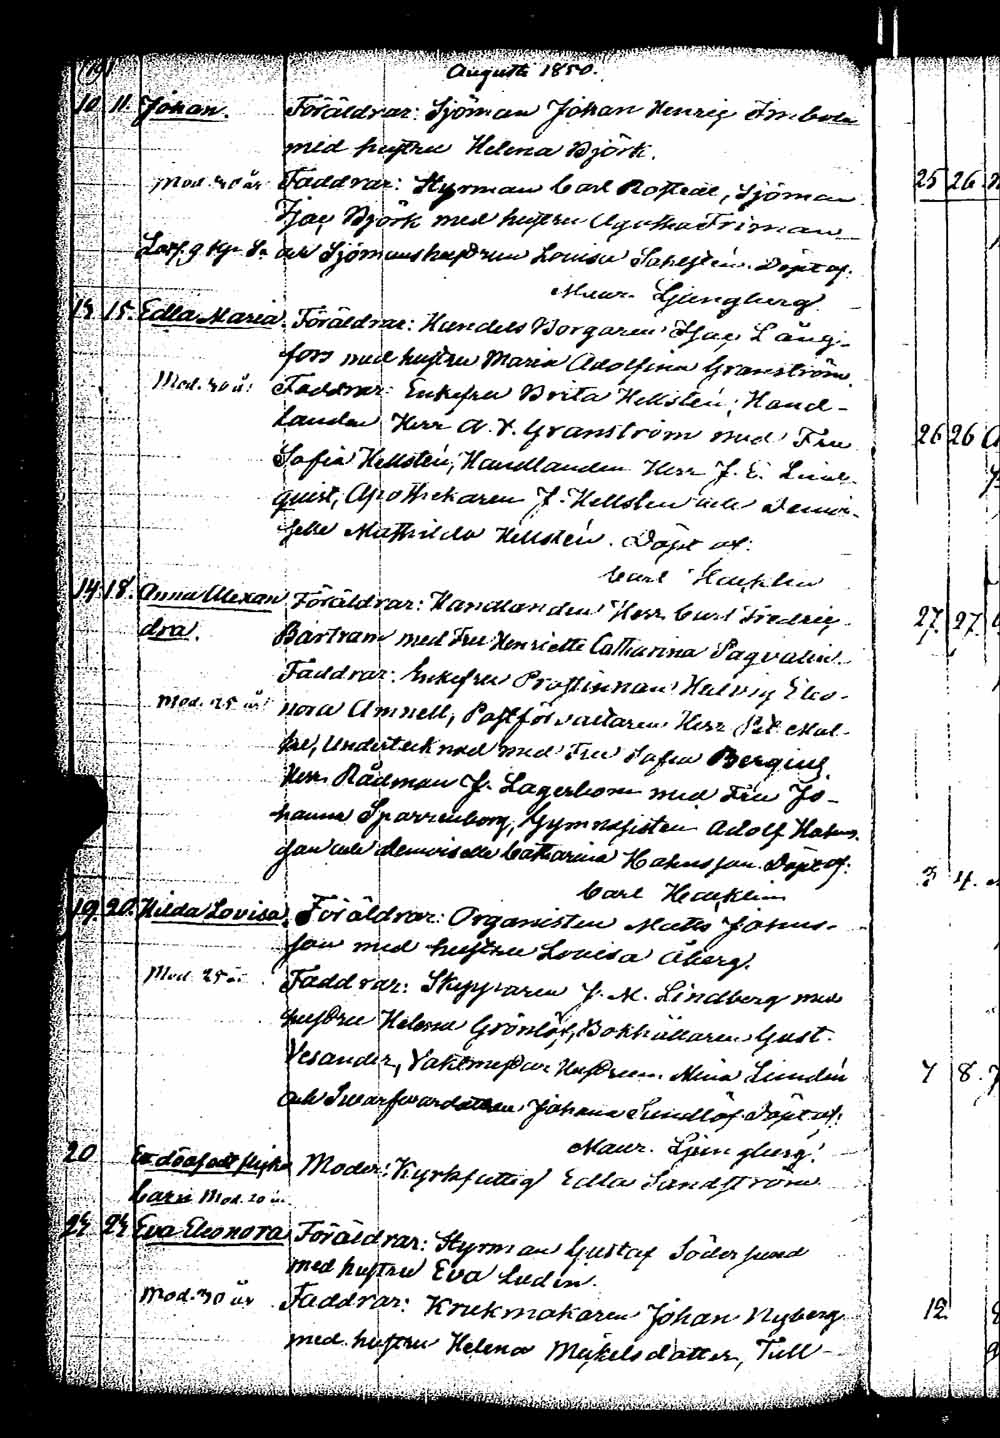 Augusti 1850.
10. 11. Johan. Föräldrar: Sjöman Johan Henric
med hustru Helena Björk.
Mod. 30 år Faddrar: Styrman Carl Sjöman
Isac Björk med hustru Agatha Friman
Sjömanshustrun Lovisa Döpt af:
Maur. Ljungberg
15. Edla Maria. Föräldrar: Handels Borgaren Isac Lång-
fors med hustru Maria Adolfina Granström.
Mod. 30 år Faddrar: Enkefru Brita Hellstén, Hand-
landen Herr A. V. Granström med Fru
Sofia Hellstén, Handlanden Herr J. E. Lind-
quist, Apothekaren J. Hellstén och Demoi-
selle Mathilda Hellstén. Döpt af:
Carl
14. 18. Anna Alexan Föräldrar: Handlanden Herr Carl Fredric
dra. Bartram med Fru Henriette Catharina
Faddrar: Enkefru Prostinnan Hedvig Eleo-
Mod. 25 år nora Amnell, Postförvaltaren Herr
Undertecknad med Fru Sofia Bergius,
Herr Rådman J. Lagerbom med Fru Jo-
hanna Sparrenborg, Gymnasisten Adolf Hahns-
son och demoiselle Catharina Hahnsson. Döpt af:
Carl
19. 20. Hilda Lovisa. Föräldrar: Organisten Matts Johans-
son med hustru Lovisa Åberg.
Mod. 25 år Faddrar: Skepparen J. M. Lindberg med
hustru Helena Grönlöf, Bokhållaren Gust.
Vesander, Vaktmästare Hustrun Mina Lundén
och Johana Sundlöf. Döpt af:
Maur. Ljungberg.
20 Ett dödfödt flicko Moder: Kyrkfattig Edla Sandström
barn Mod. 20 år
24 Eva Eleonora Föräldrar: Styrman Gustaf Söderlund
med hustru Eva Ludin.
Mod. 30 år Faddrar: Krukmakaren Johan Nyberg
med hustru Helena Mickelsdotter, Tull-
25 26
26 26
27. 27.
3 4.
7 8.
12